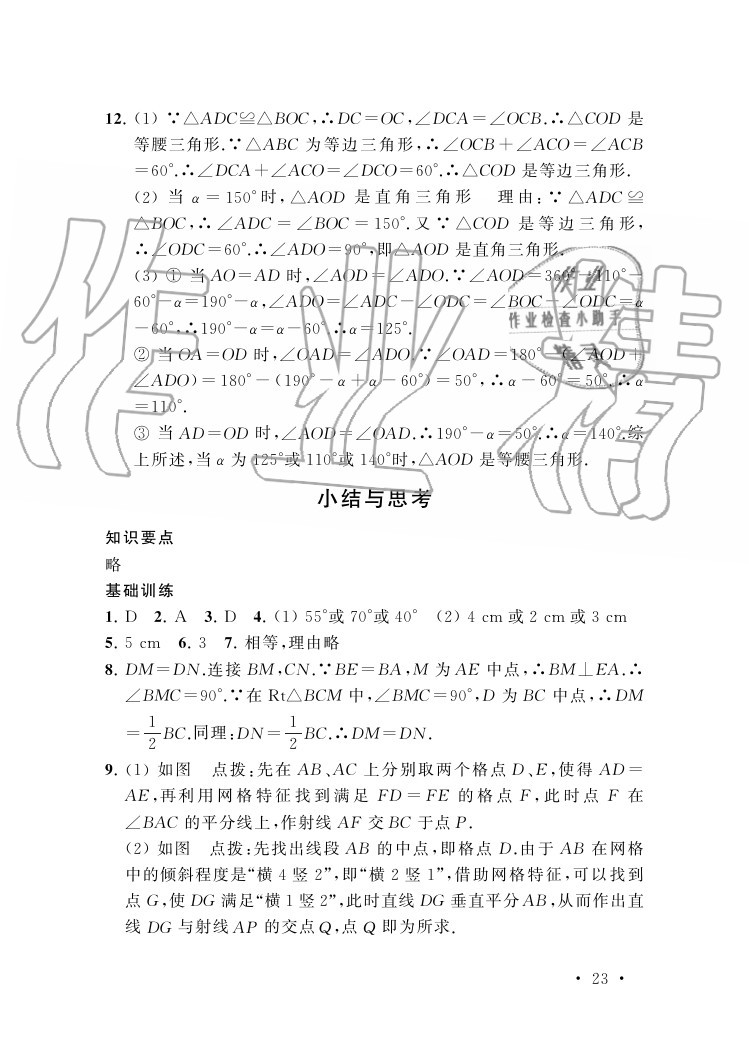 12. (1) ∵△ADC≌△BOC,∴DC=OC,∠DCA=∠OCB.∴△COD 是
等腰三角形.∵△ABC 为等边三角形,∴∠OCB+∠ACO=∠ACB
=60°.∴∠DCA+∠ACO=∠DCO=60°.∴△COD 是等边三角形.
(2) 当 α=150°时,△AOD 是直角三角形 理由:∵△ADC≌
△BOC,∴∠ADC=∠BOC=150°.又∵△COD 是等边三角形,
∴∠ODC=60°.∴∠ADO=90°,即△AOD 是直角三角形.
(3) ① 当AO=AD 时,∠AOD=∠ADO.∵∠AOD=360°-110°-
60°-α=190°-α,∠ADO=∠ADC-∠ODC=∠BOC-∠ODC=α
-60°,∴190°-α=α-60°.∴α=125°.
② 当OA=OD 时,∠OAD=∠ADO.∵∠OAD=180°-(∠AOD+
∠ADO)=180°-(190°-α+α-60°)=50°,∴α-60°=50°.∴α
=110°.
③ 当 AD=OD 时,∠AOD=∠OAD.∴190°-α=50°.∴α=140°.综
上所述,当 α 为 125°或 110°或 140°时,△AOD 是等腰三角形.
小结与思考
知识要点
略
基础训练
1. D 2. A 3. D 4. (1) 55°或 70°或 40° (2) 4 cm 或 2 cm 或 3 cm
5. 5 cm 6. 3 7. 相等,理由略
8. DM=DN.连接 BM,CN.∵BE=BA,M 为 AE 中点,∴BM⊥EA.∴
∠BMC=90°.∵在 Rt△BCM 中,∠BMC=90°,D 为 BC 中点,∴DM
=1/2BC.同理:DN=1/2BC.∴DM=DN.
9. (1) 如图 点拨:先在 AB、AC 上分别取两个格点 D、E,使得 AD=
AE,再利用网格特征找到满足 FD=FE 的格点 F,此时点 F 在
∠BAC 的平分线上,作射线 AF 交 BC 于点 P.
(2) 如图 点拨:先找出线段 AB 的中点,即格点 D.由于 AB 在网格
中的倾斜程度是“横 4 竖 2”,即“横 2 竖 1”,借助网格特征,可以找到
点 G,使 DG 满足“横 1 竖 2”,此时直线 DG 垂直平分 AB,从而作出直
线 DG 与射线 AP 的交点 Q,点 Q 即为所求.
· 23 ·
作业精灵
作业检查小助手